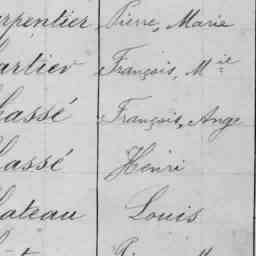 arpentier Pierre, Marie
artier François, Mie
assé François, Ange
assé Henri
ateau Louis